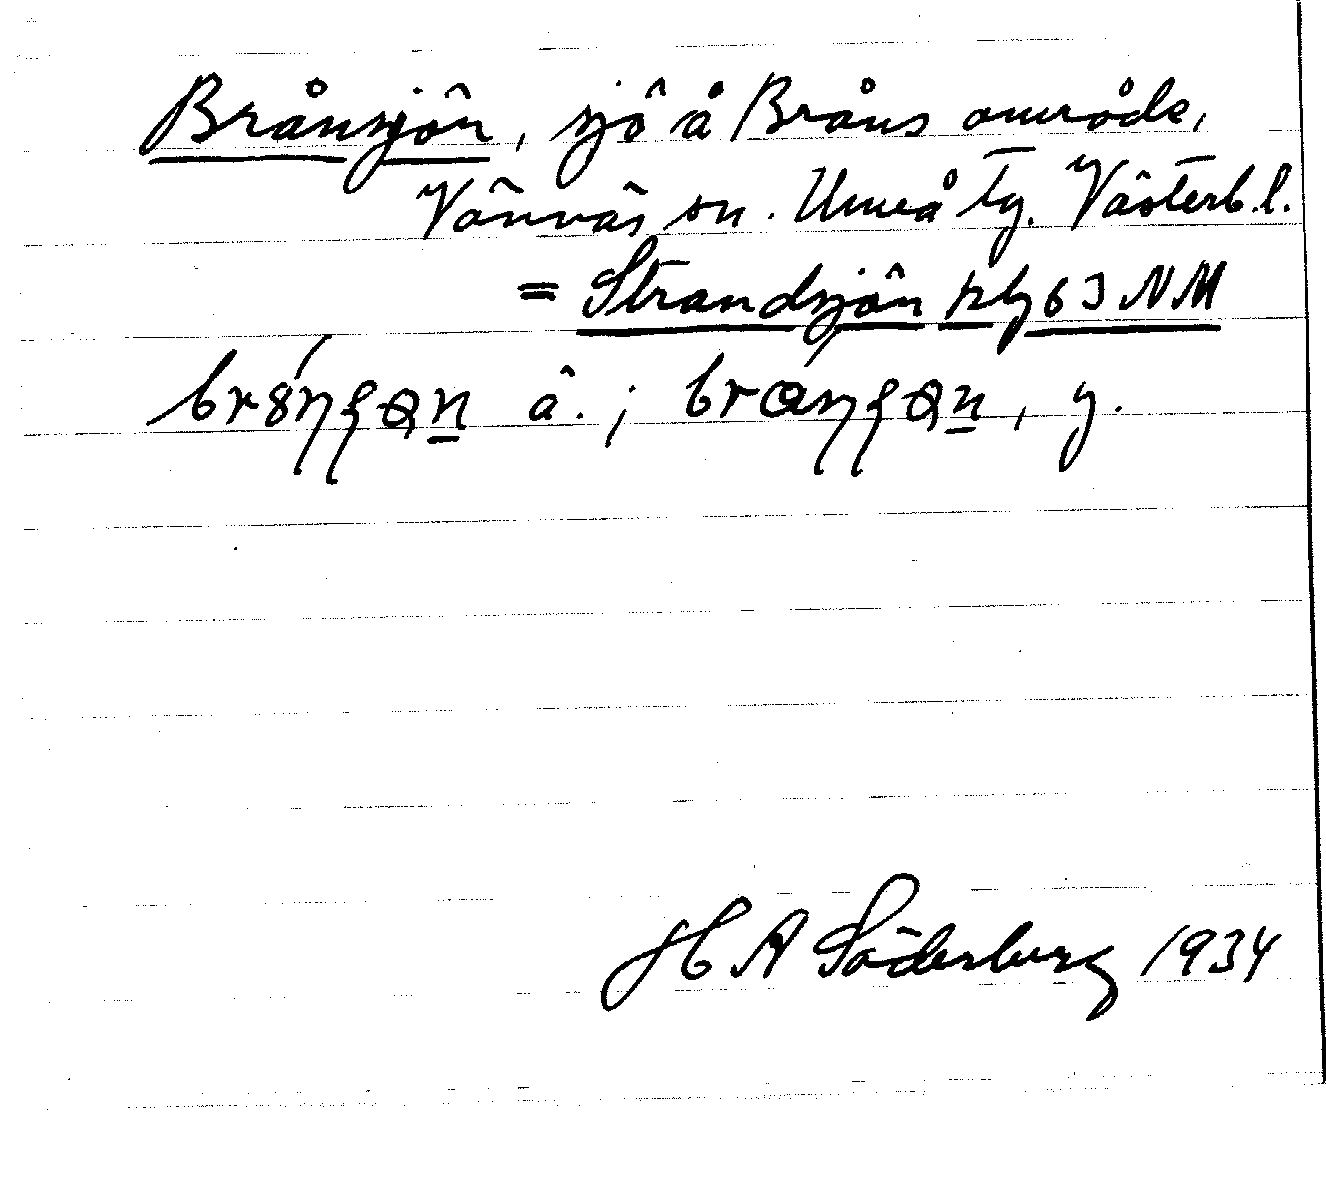 Brånsjön, sjö å Bråns område,
Vännäs sn. Umeå tg. Västerb.l.
= Strandsjön kbl 63 NM
ä. ; y.
H A Söderberg 1934